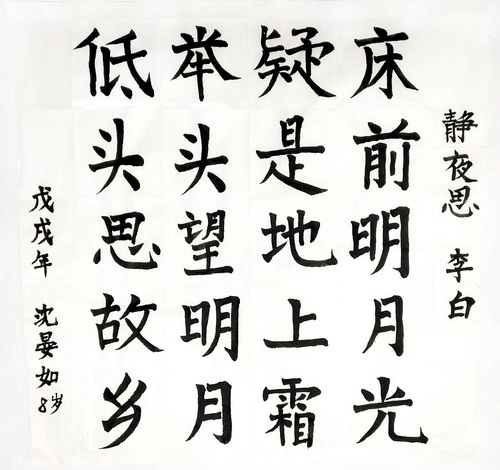 静夜思 李白
床前明月光
疑是地上霜
举头望明月
低头思故乡
戊戌年 沈晏如8岁